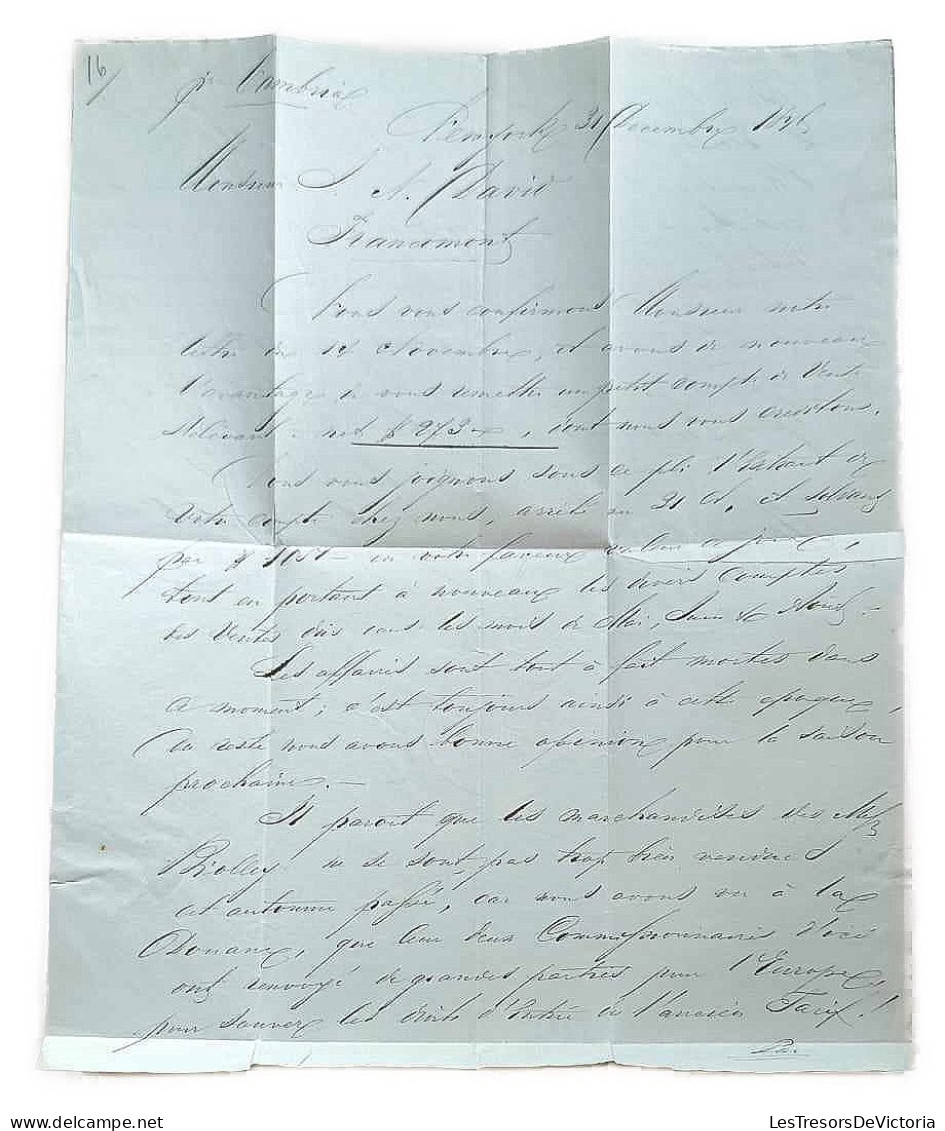 16
pr Cambria
Newyork 31 Decembre 1846
Monsieur J. N. David
Francomont
Nous vous confirmons Monsieur notre
lettre du 14 Novembre, et avons de nouveau
l'avantage de vous remettre un petit compte de Vente
s'élévant net $ 273 , dont nous vous creditons.
Nous vous joignons sous ce pli l'Extrait de
votre compte chez nous, arrêté au 31 Ct, et soldant
par $ en votre faveur valeur ce jour,
tout en portant à nouveau les divers comptes
des Ventes dûs tous les mois de Mai, Juin & Août.
Les affaires sont tout à fait mortes dans
ce moment; c'est toujours ainsi à cette epoque,
du reste nous avons bonne opinion pour la saison
prochaine.-
Il parait que les marchandises des Mrs
Biolley ne se sont pas trop bien vendues
cet automne passé, car nous avons vu à la
Douane, que leur deux Commissionnaires d'ici
ont renvoyé de grandes parties pour l'Europe,
pour sauver les droits d'Entrée de l'ancien Tarif!
LesTresorsDeVictoria